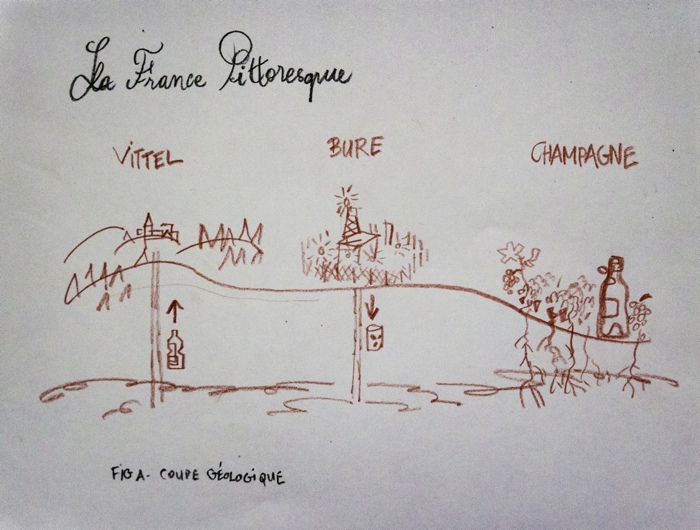 La France Pittoresque
VITTEL BURE CHAMPAGNE
FIG A- COUPE GÉOLOGIQUE